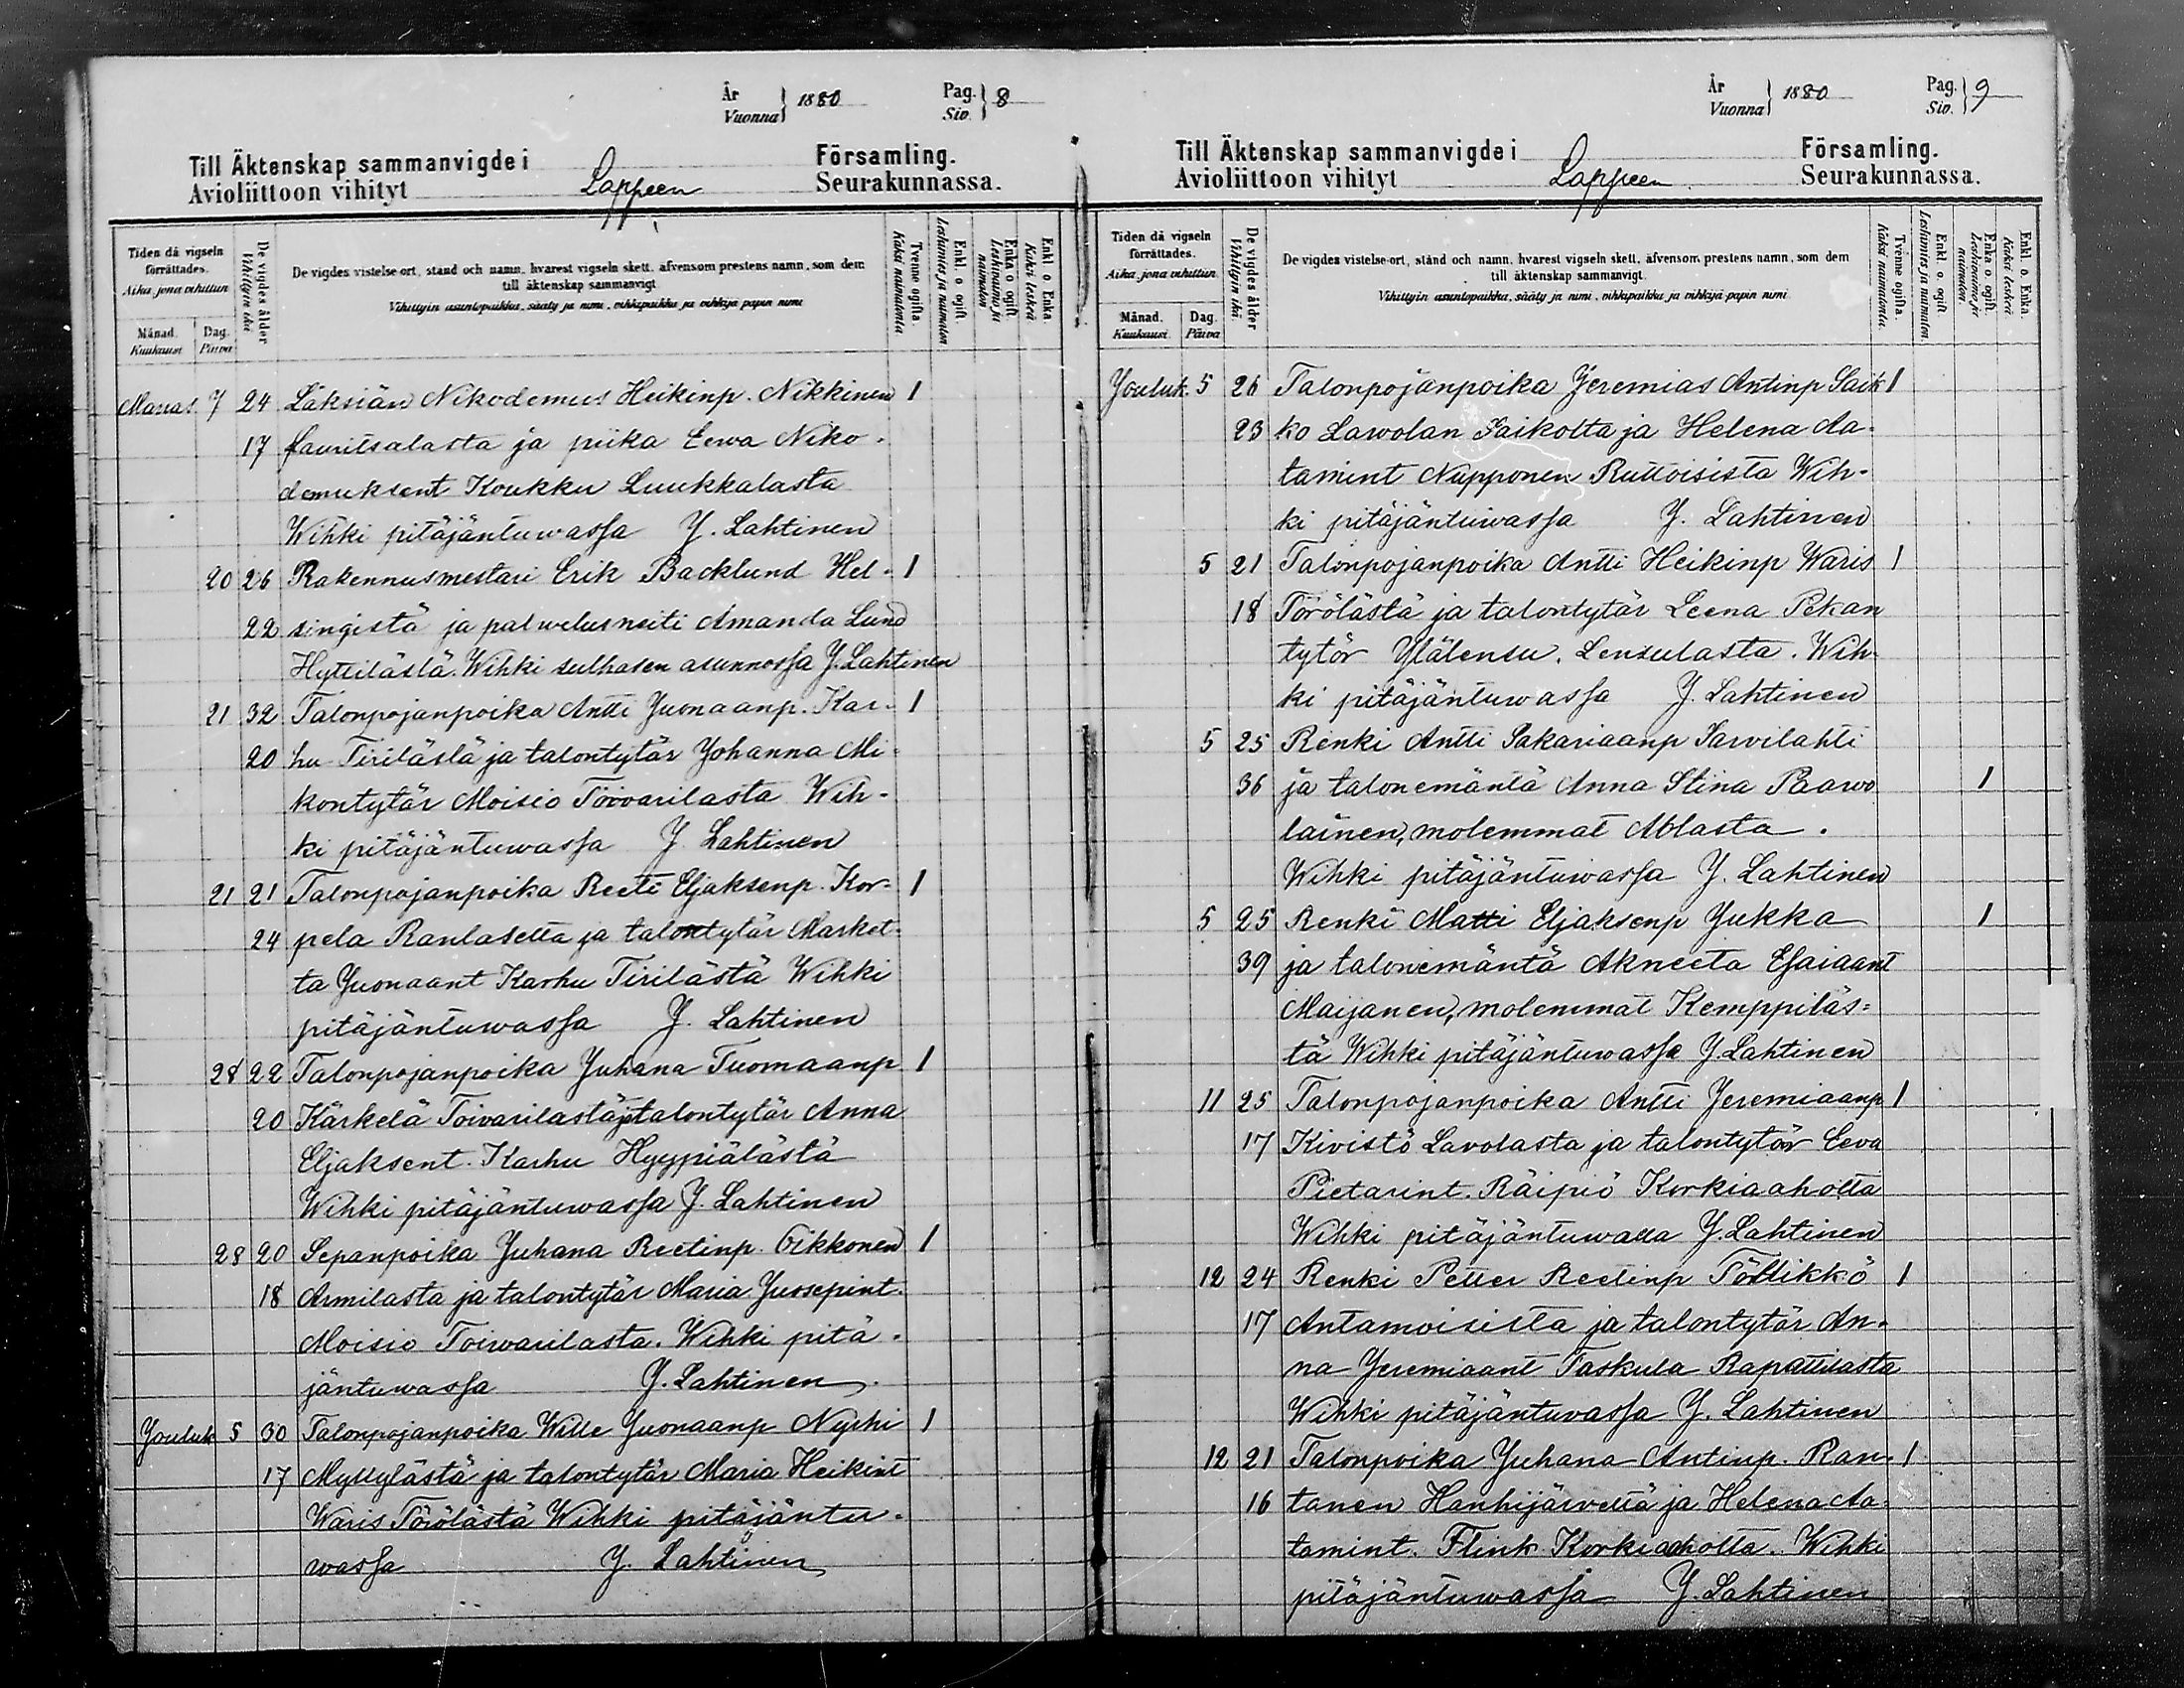 År
Vuonna } 1880
Pag.
Siv. } 8
Till Äktenskap sammanvigde i Församling.
Avioliittoon vihityt Lappeen Seurakunnassa.
Tiden då vigseln förrättades.
Aika, jona vihittiin
Månad. Kuukausi
Dag. Päivä
De vigdes ålder
Vihittyin ikä
De vigdes vistelse-ort, stånd och namn, hvarest vigseln skett, äfvensom prestens namn, som dem
till äktenskap sammanvigt.
Vihittyin asuntopaikka, sääty ja nimi, vihkipaikka ja vihkijä papin nimi
Tvenne ogifta.
Kaksi naimatonta.
Enkl. o. ogift.
Leskimies ja naimaton
Enka o. ogift
Leskivaimo ja naimaton
Enkl. o. Enka.
Kaksi leskeä
Marras 7 24 Läksiän Nikodemus Heikinp. Nikkinen 1
17 Lauritsalasta ja piika Eewa Niko-
demuksent Koukku Luukkalasta
Wihki pitäjäntuwassa Y. Lahtinen
20 26 Rakennusmestari Erik Backlund Hel- 1
22 singistä ja palwelusneiti Amanda Lund
Hyttilästä. Wihki sulhasen asunnossa Y. Lahtinen
21 32 Talonpojanpoika Antti Juonaanp. Kar- 1
20 hu Tirilästä ja talontytär Johanna Mi-
kontytär Moisio Toivarilasta Wih-
ki pitäjäntuwassa Y. Lahtinen
21 21 Talonpojanpoika Reeti Eljaksenp. Kor- 1
24 pela Ranlasetta ja talontytär Market-
ta Juonaant Karhu Tirilästä Wihki
pitäjäntuwassa Y. Lahtinen
28 22 Talonpojanpoika Juhana Tuomaanp 1
20 Kärkelä Toivarilasta ja talontytär Anna
Eljaksent. Karhu Hyypiälästä
Wihki pitäjäntuwassa Y. Lahtinen
28 20 Sepanpoika Juhana Reetinp. Oikkonen 1
18 Armilasta ja talontytär Maria Jussepint.
Moisio Toiwarilasta. Wihki pitä-
jäntuwassa Y. Lahtinen
Jouluk 5 30 Talonpojanpoika Wille Juonaanp Nyrhi 1
17 Myllylästä ja talontytär Maria Heikint
Waris Törölästä Wihki pitäjäntu-
wassa Y. Lahtinen
År
Vuonna } 1880
Pag.
Siv. } 9
Till Äktenskap sammanvigde i Församling.
Avioliittoon vihityt Lappeen Seurakunnassa.
Tiden då vigseln förrättades.
Aika, jona vihittiin
Månad. Kuukausi.
Dag. Päivä
De vigdes ålder
Vihittyin ikä.
De vigdes vistelse-ort, stånd och namn, hvarest vigseln skett, äfvensom prestens namn, som dem
till äktenskap sammanvigt.
Vihittyin asuntopaikka, sääty ja nimi, vihkipaikka ja vihkijä papin nimi
Tvenne ogifta.
Kaksi naimatonta.
Enkl. o. ogift.
Leskimies ja naimaton.
Enka o. ogift.
Leskivaimo ja naimaton.
Enkl. o. Enka.
Kaksi leskeä
Jouluk. 5 26 Talonpojanpoika Jeremias Antinp Saik 1
23 ko Lawolan Saikolta ja Helena Aa-
tamint Nupponen Ruttoisista Wih-
ki pitäjäntuwassa Y. Lahtinen
5 21 Talonpojanpoika Antti Heikinp Waris 1
18 Törölästä ja talontytär Leena Pekan
tytör Ylälensu. Lensulasta. Wih-
ki pitäjäntuwassa Y. Lahtinen
5 25 Renki Antti Sakariaanp Sarvilahti
36 ja talonemäntä Anna Stiina Paawo 1
lainen, molemmat Ahlasta.
Wihki pitäjäntuwassa Y. Lahtinen
5 25 Renki Matti Eljaksenp Jukka 1
39 ja talonemäntä Akneeta Esaiaant
Maijanen, molemmat Kemppiläs-
tä Wihki pitäjäntuwassa Y. Lahtinen
11 25 Talonpojanpoika Antti Jeremiaanp 1
17 Kivistö Lavolasta ja talontytör Eeva
Pietarint. Räipiö Korkiaaholta
Wihki pitäjäntuwassa Y. Lahtinen
12 24 Renki Petter Reetinp Pöllikkö 1
17 Antamoisista ja talontytär An-
na Jeremiaant Taskula Rapattilasta
Wihki pitäjäntuvassa Y. Lahtinen
12 21 Talonpoika Juhana Antinp. Ran- 1
16 tanen Hanhijärveltä ja Helena Aa-
tamint. Flink Korkiaaholta. Wihki
pitäjäntuwassa Y. Lahtinen